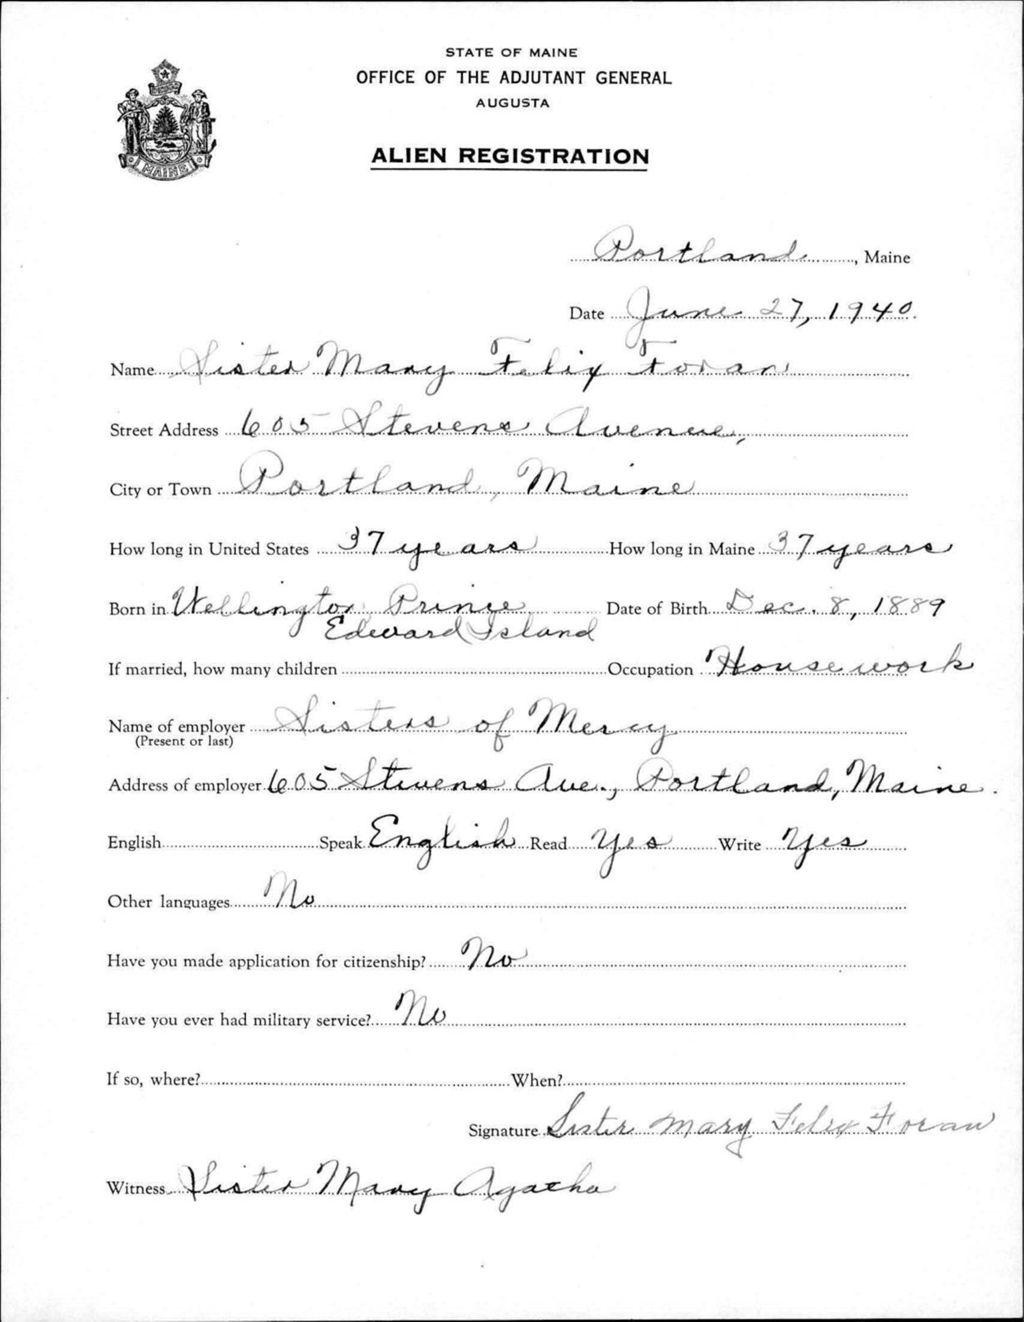 STATE OF MAINE
OFFICE OF THE ADJUTANT GENERAL
AUGUSTA
ALIEN REGISTRATION
MAINE
Portland, Maine
Date June 27, 1940.
Name Sister Mary Felix Foran
Street Address 605 Stevens Avenue,
City or Town Portland, Maine
How long in United States 37 years How long in Maine 37 years
Born in Wellington Prince Date of Birth Dec. 8, 1889
Edward Island
If married, how many children Occupation Housework
Name of employer Sisters of Mercy
(Present or last)
Address of employer 605 Stevens Ave., Portland, Maine.
English Speak English Read Yes Write Yes
Other languages No
Have you made application for citizenship? No
Have you ever had military service? No
If so, where? When?
Signature Sister Mary Felix Foran
Witness Sister Mary Agatha